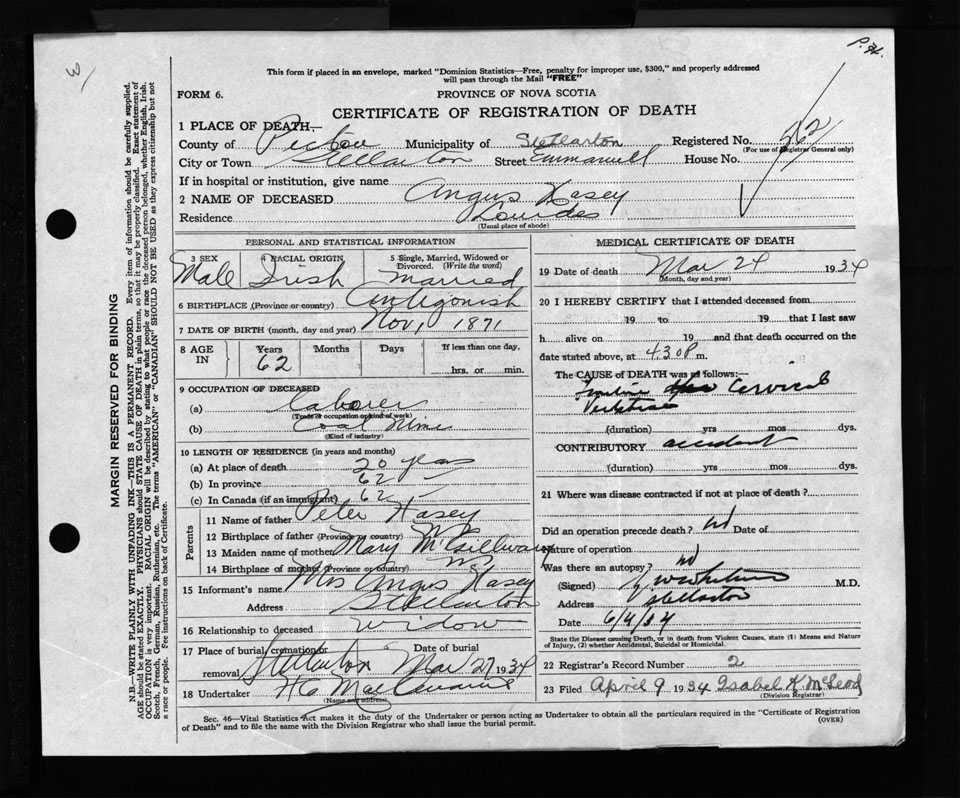 P.H.
This form if placed in an envelope, marked "Dominion Statistics—Free, penalty for improper use, $300," and properly addressed
will pass through the Mail "FREE"
FORM 6.
PROVINCE OF NOVA SCOTIA
CERTIFICATE OF REGISTRATION OF DEATH
1 PLACE OF DEATH—
County of Pictou Municipality of Stellarton Registered No.
(For use of Registrar General only)
City or Town Stellarton Street Emmanuell House No.
If in hospital or institution, give name
2 NAME OF DECEASED Angus Hasey
Residence Lourdes
(Usual place of abode)
PERSONAL AND STATISTICAL INFORMATION
3 SEX 4 RACIAL ORIGIN 5 Single, Married, Widowed or Divorced. (Write the word)
Male Irish Married
6 BIRTHPLACE (Province or country) Antigonish
7 DATE OF BIRTH (month, day and year) Nov, 1871
8 AGE IN Years Months Days If less than one day,
62 hrs. or min.
9 OCCUPATION OF DECEASED
(a) Laborer
(Trade or occupation or kind of work)
(b) Coal Mine
(Kind of industry)
10 LENGTH OF RESIDENCE (in years and months)
(a) At place of death 20 years
(b) In province 62 -
(c) In Canada (if an immigrant) 62 -
Parents
11 Name of father Peter Hasey
12 Birthplace of father (Province or country) N S
13 Maiden name of mother Mary McGillivary
14 Birthplace of mother (Province or country) N S
15 Informant's name Mrs Angus Hasey
Address Stellarton
16 Relationship to deceased Widow
17 Place of burial, cremation or removal Stellarton Date of burial Mar 27 1934
18 Undertaker H C
(Name and address)
MEDICAL CERTIFICATE OF DEATH
19 Date of death Mar 24 1934
(Month, day and year)
20 I HEREBY CERTIFY that I attended deceased from
19 to 19 that I last saw
h alive on 19 and that death occurred on the
date stated above, at 4.30 P m.
The CAUSE OF DEATH was as follows:—
Cervical
Vertebrae
(duration) yrs mos dys.
CONTRIBUTORY accident
(duration) yrs mos dys.
21 Where was disease contracted if not at place of death?
Did an operation precede death? No Date of
Nature of operation
Was there an autopsy? no
(Signed) M.D.
Address Stellarton
Date 6/4/34
State the Disease causing Death, or in death from Violent Causes, state (1) Means and Nature
of Injury, (2) whether Accidental, Suicidal or Homicidal.
22 Registrar's Record Number 2
23 Filed April 9 1934 Isabel K. McLeod
(Division Registrar)
Sec. 46—Vital Statistics Act makes it the duty of the Undertaker or person acting as Undertaker to obtain all the particulars required in the "Certificate of Registration
of Death" and to file the same with the Division Registrar who shall issue the burial permit. (OVER)
MARGIN RESERVED FOR BINDING
N.B.—WRITE PLAINLY WITH UNFADING INK—THIS IS A PERMANENT RECORD. Every item of information should be carefully supplied.
AGE should be stated EXACTLY. PHYSICIANS should STATE CAUSE OF DEATH in plain terms, so that it may be properly classified. Exact statement of
OCCUPATION is very important. RACIAL ORIGIN will be described by stating to what people or race the deceased person belonged, whether English, Irish,
Scotch, French, German, Russian, Ruthenian, etc. The terms "AMERICAN" or "CANADIAN" SHOULD NOT BE USED as they express citizenship but not
a race or people. See instructions on back of Certificate.